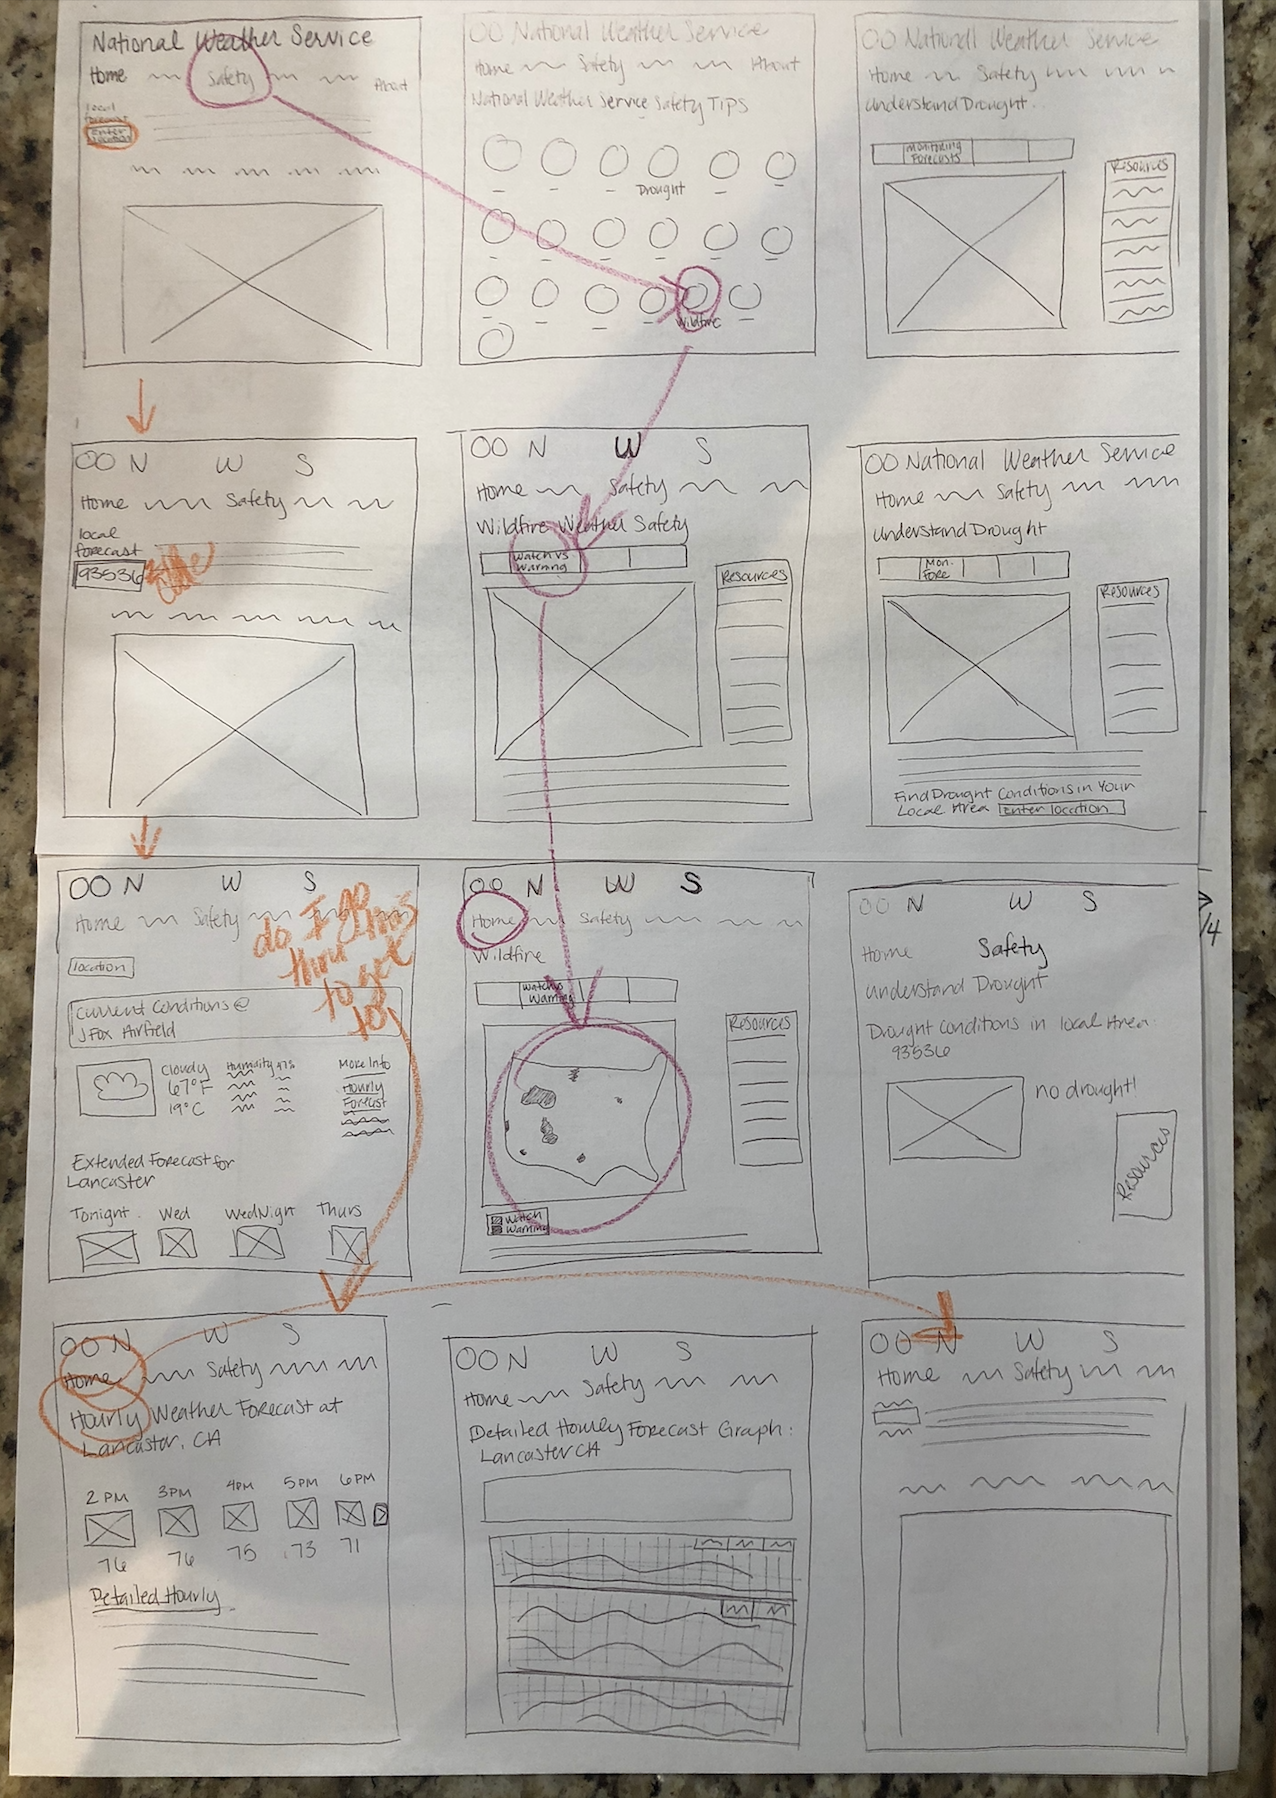 National Weather Service
Home Safety About
local
forecast
Enter
location
National Weather Service
Home Safety About
National Weather Service Safety Tips
Drought
Wildfire
National Weather Service
Home Safety
Understand Drought
Monitoring
Forecasts
Resources
N W S
Home Safety
local
forecast
93536
N W S
Home Safety
Wildfire Weather Safety
Watch vs
Warning
Resources
National Weather Service
Home Safety
Understand Drought
Mon.
Fore
Resources
Find Drought Conditions in Your
Local Area Enter location
N W S
Home Safety
do I go
thru this
to get
to
location
Current Conditions @
J Fox Airfield
Cloudy
67°F
19°C
Humidity 47%
More Info
Hourly
Forecast
Extended Forecast for
Lancaster
Tonight Wed Wed Night Thurs
N W S
Home Safety
Wildfire
Watch vs
Warning
Resources
Watch
Warning
N W S
Home Safety
Understand Drought
Drought Conditions in local Area
93536
no drought!
Resources
/4
N W S
Home Safety
Hourly Weather Forecast at
Lancaster, CA
2 PM 3PM 4PM 5PM 6PM
76 76 75 73 71
Detailed Hourly
N W S
Home Safety
Detailed Hourly Forecast Graph:
Lancaster CA
N W S
Home Safety